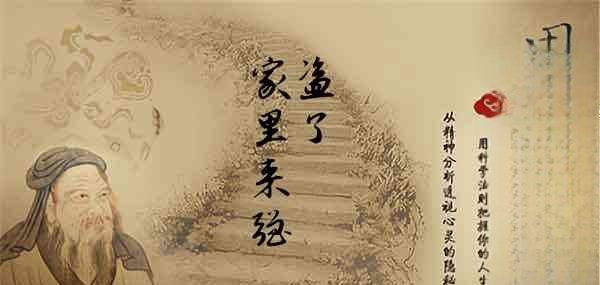 家里来强
盗了
用科学法则把握你的人生
从精神分析透视心灵的隐秘